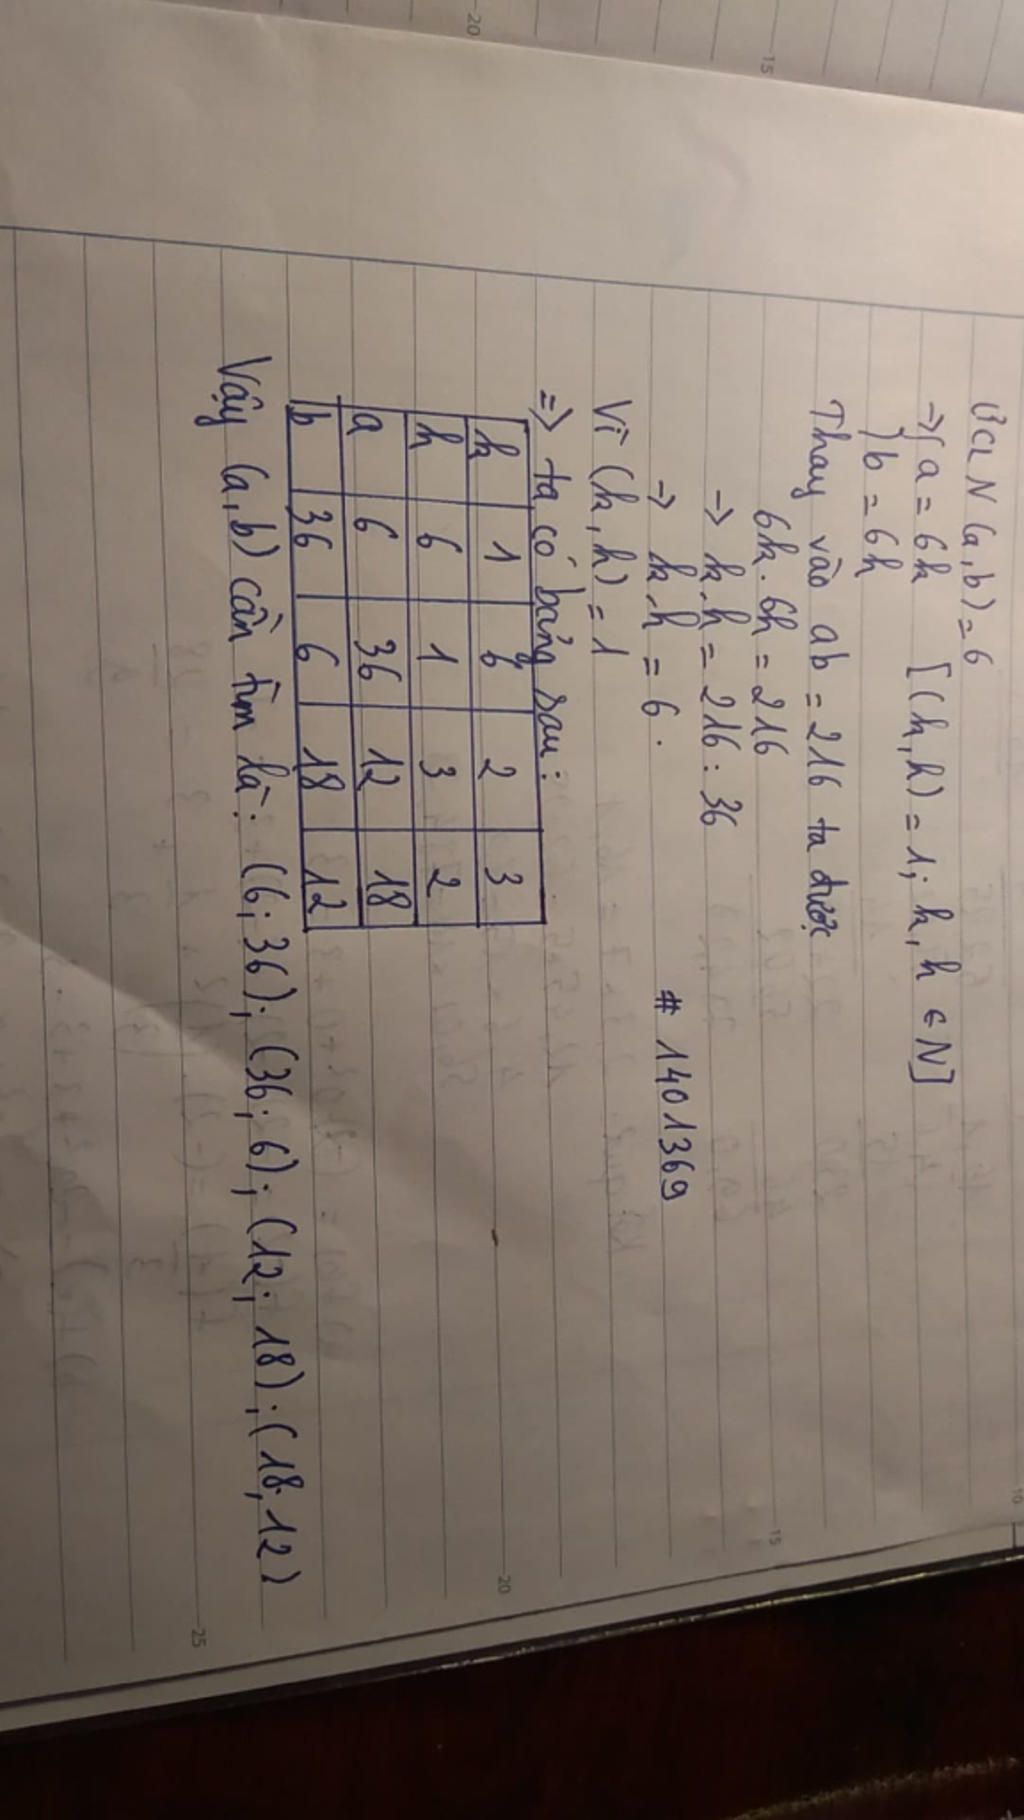 ƯCLN (a,b) = 6
→ { a = 6k [(k,h) = 1; k,h ∈ N]
b = 6h
Thay vào ab = 216 ta được
6k. 6h = 216
→ k.h = 216 : 36
→ k.h = 6.
# 1401369
Vì (k,h) = 1
=> ta có bảng sau:
k 1 6 2 3
h 6 1 3 2
a 6 36 12 18
b 36 6 18 12
Vậy (a,b) cần tìm là: (6; 36); (36; 6); (12; 18); (18,12)
20
15
10
15
20
25